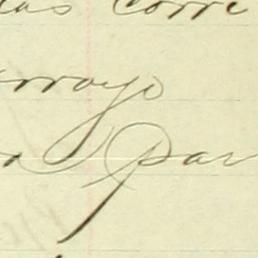 das corre
arroyo
a par